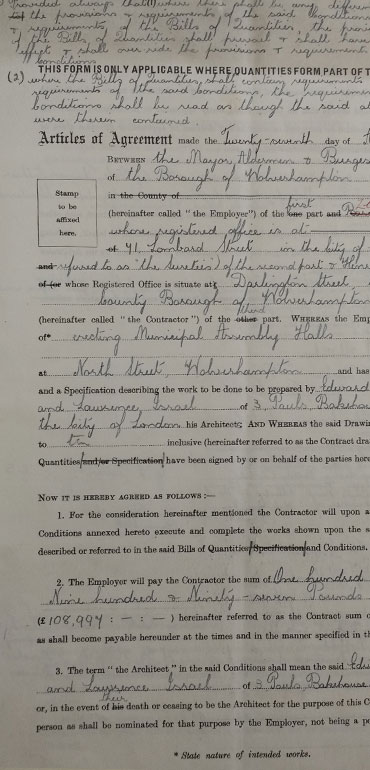 Provided always that (1) where there shall be any differen
the provisions & requirements of the said Conditions
& requirements of the Bills of Quantities, the provis
of the Bills of Quantities shall prevail & shall have
effect & shall over ride the provisions & requirements
Conditions
THIS FORM IS ONLY APPLICABLE WHERE QUANTITIES FORM PART OF T
(2) where the Bills of Quantities, shall contain requirements
requirements of the said Conditions, the requiremen
Conditions shall be read as though the said a
were therein contained.
Articles of Agreement made the Twenty-seventh day of
BETWEEN the Mayor, Aldermen & Burges
of the Borough of Wolverhampton
in the County of
Stamp
to be
affixed
here.
first
(hereinafter called "the Employer") of the one part and
whose registered office is at
of 41, Lombard Street in the City of
and referred to as "the Sureties") of the second part & Henr
of (or whose Registered Office is situate at) Darlington Street,
County Borough of Wolverhampton
third
(hereinafter called "the Contractor") of the other part. WHEREAS the Emp
of* erecting Municipal Assembly Halls
at North Street, Wolverhampton and has
and a Specification describing the work to be done to be prepared by Edward
and Lawrence Israel of 3, Pauls Bakehou
the City of London his Architects; AND WHEREAS the said Drawi
to ten inclusive (hereinafter referred to as the Contract dra
Quantities and/or Specification have been signed by or on behalf of the parties here
NOW IT IS HEREBY AGREED AS FOLLOWS :—
1. For the consideration hereinafter mentioned the Contractor will upon a
Conditions annexed hereto execute and complete the works shown upon the s
described or referred to in the said Bills of Quantities/Specification/and Conditions.
2. The Employer will pay the Contractor the sum of One hundred
Nine hundred & Ninety-seven Pounds
(£108,997 : - : - ) hereinafter referred to as the Contract sum o
as shall become payable hereunder at the times and in the manner specified in th
3. The term "the Architect" in the said Conditions shall mean the said Edw
and Lawrence Israel of 3 Pauls Bakehouse
their
or, in the event of his death or ceasing to be the Architect for the purpose of this C
person as shall be nominated for that purpose by the Employer, not being a pe
* State nature of intended works.